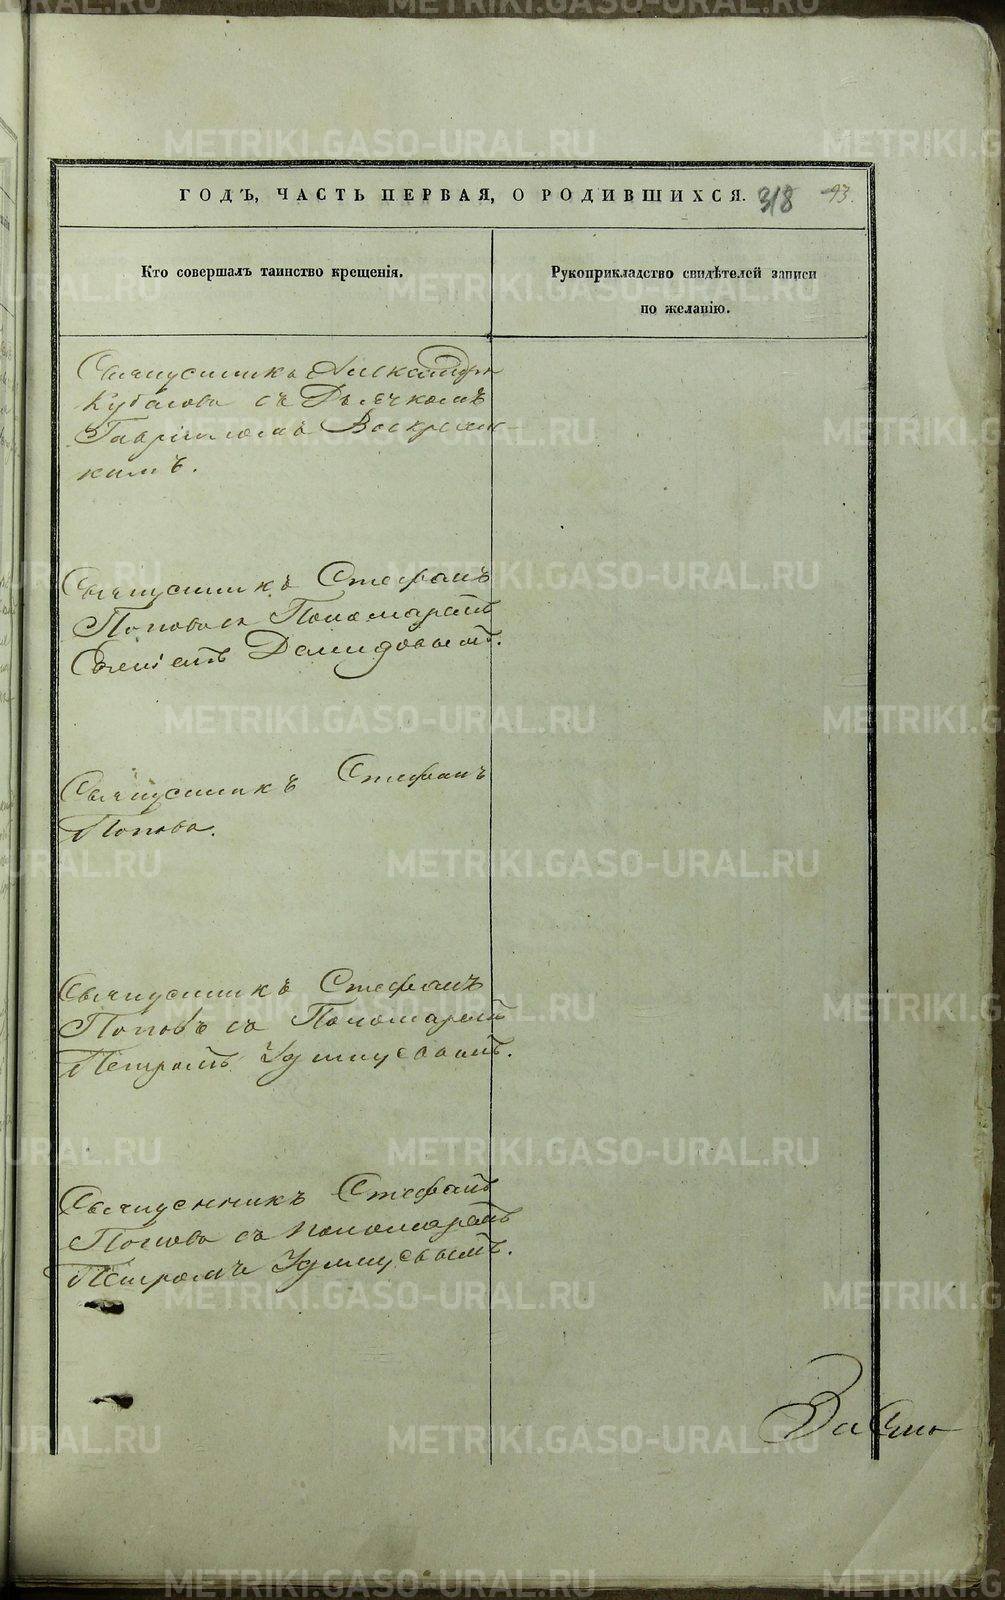 METRIKI.GASO-URAL.RU
ГОДЪ, ЧАСТЬ ПЕРВАЯ, О РОДИВШИХСЯ. 318 93.
Кто совершалъ таинство крещенія.
Рукоприкладство свидѣтелей записи
по желанію.
Священникъ Александръ
съ Дьячкомъ
Гавріиломъ Воскресен-
кимъ.
Священникъ Стефанъ
Поповъ съ Пономаремъ
Демидовымъ.
Священникъ Стефанъ
Поповъ.
Священникъ Стефанъ
Поповъ съ Пономаремъ
Петромъ Удинцовымъ.
Священникъ Стефанъ
Поповъ съ пономаремъ
Петромъ Удинцовымъ.